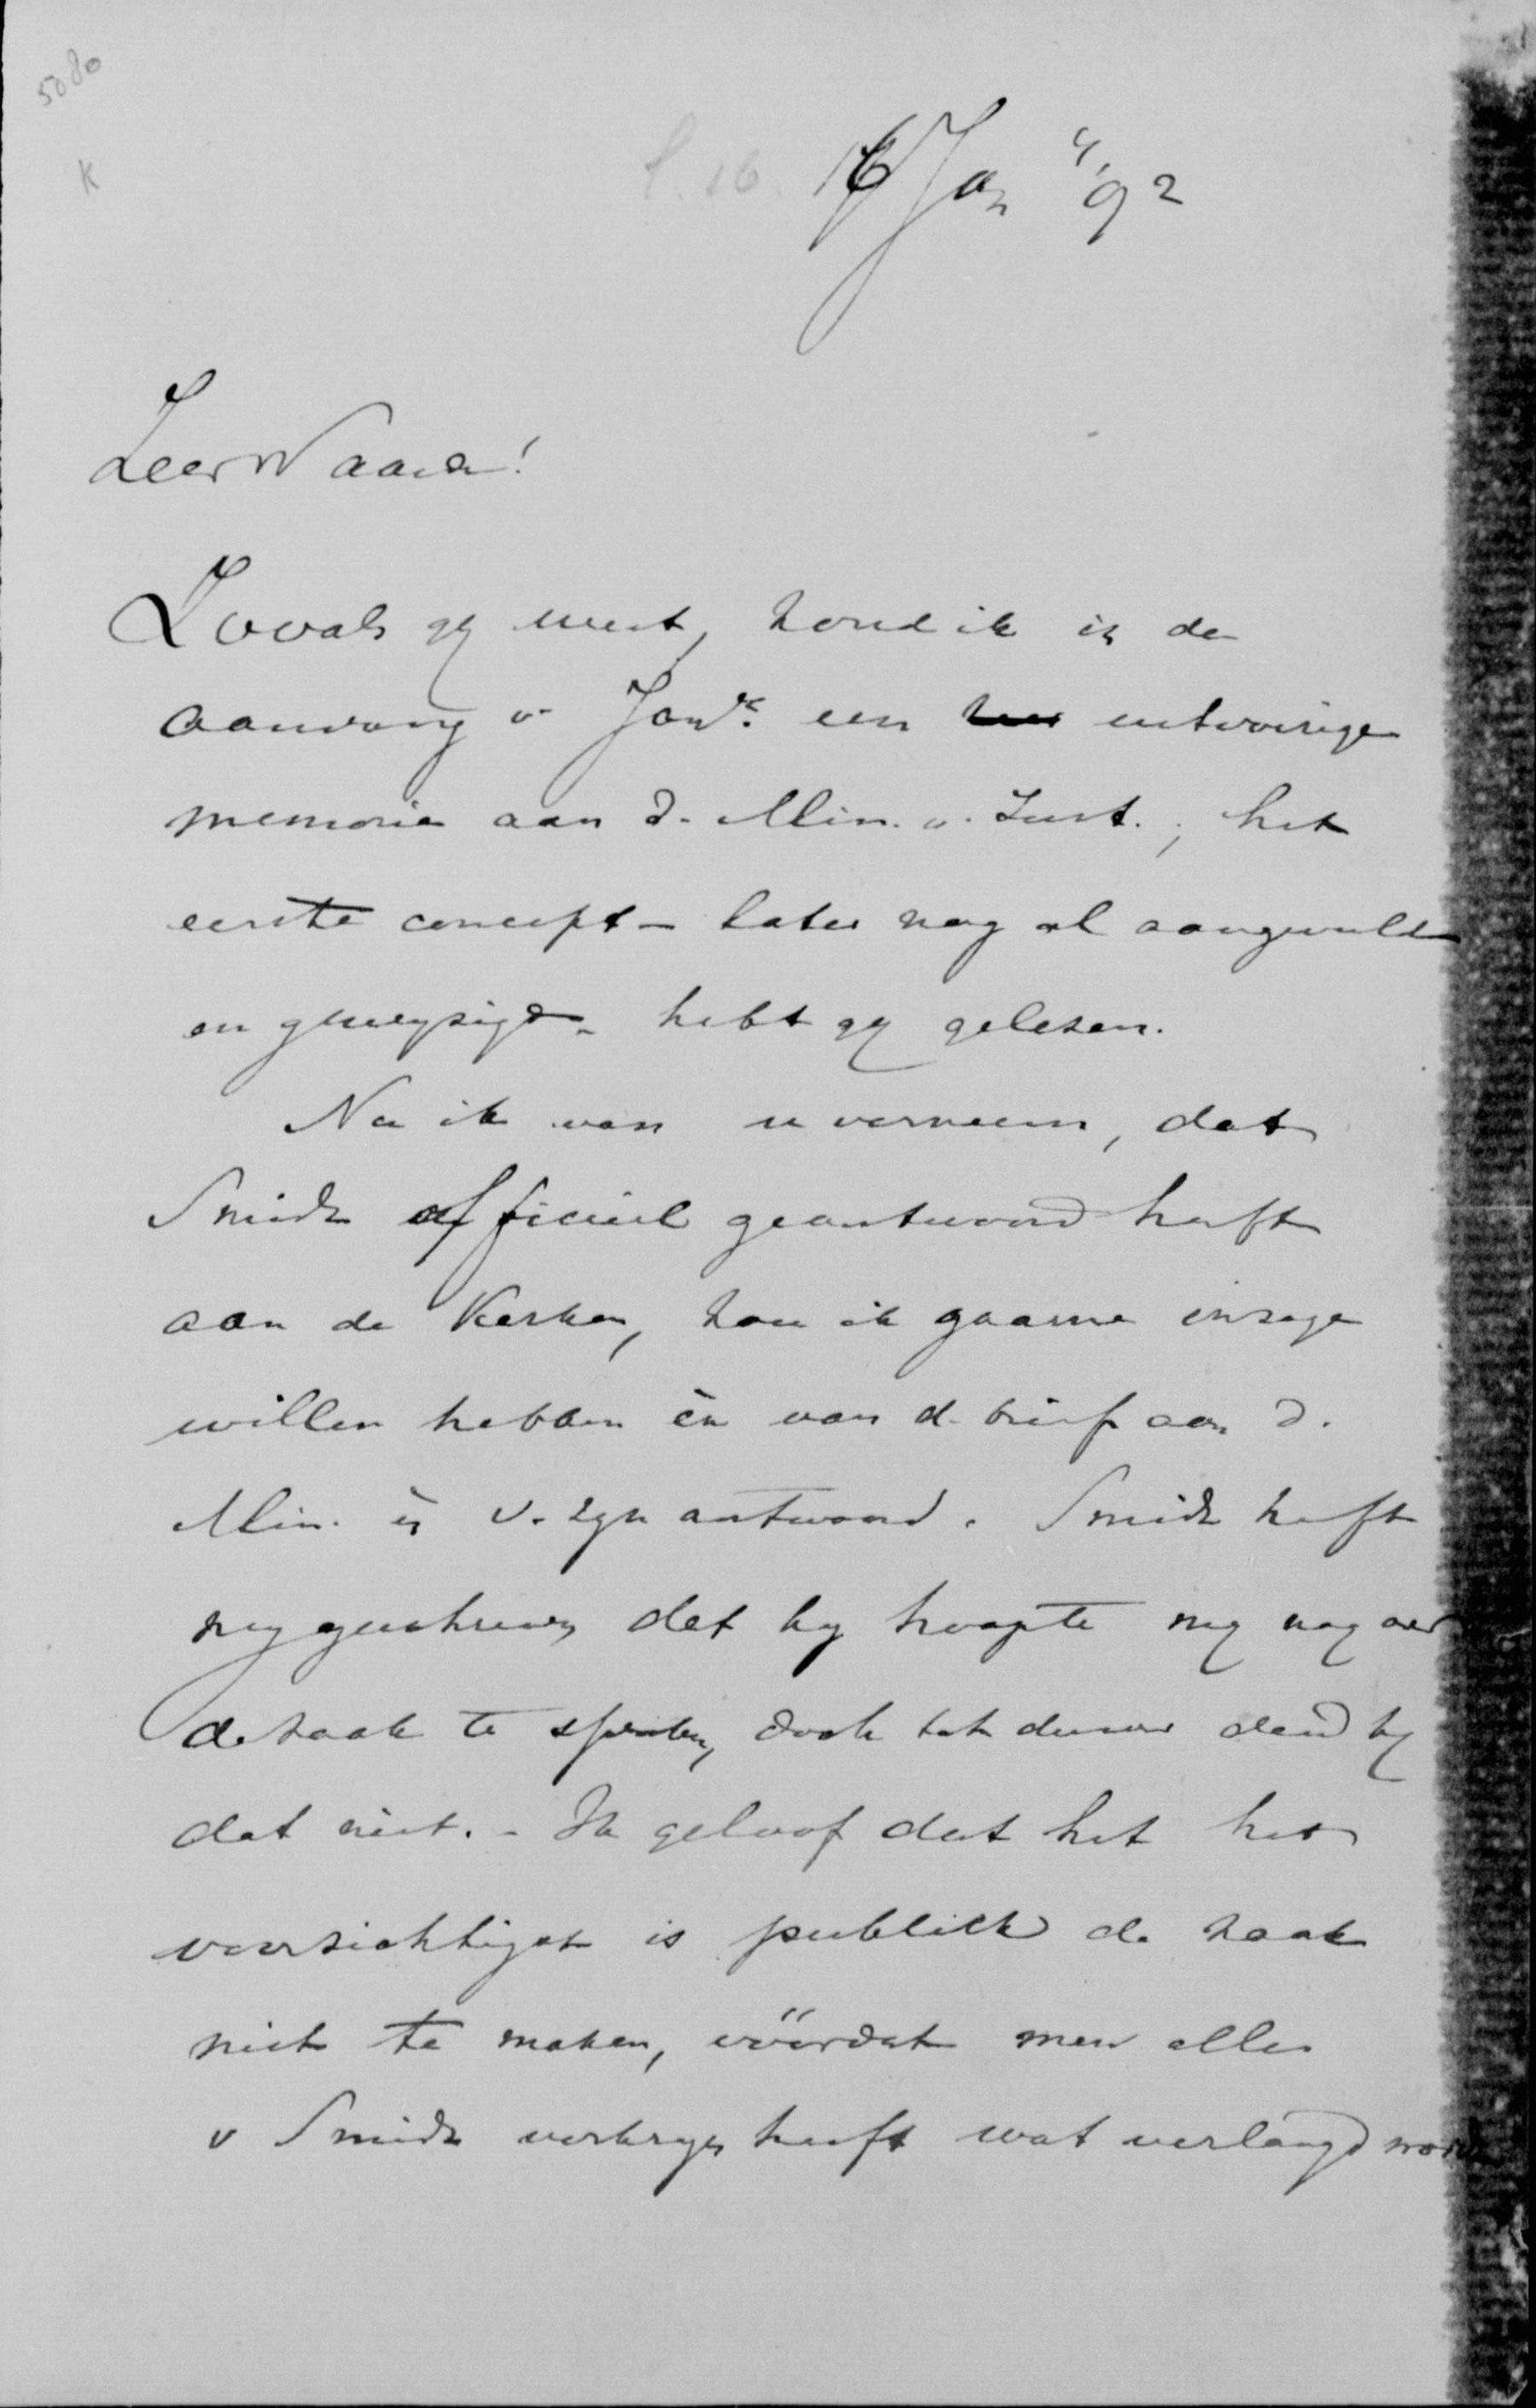 5080
K
16 Jan '92
Zeer Waarde!
Zooals gy weet, zond ik in de
aanvang v. Janr. een uitvoerige
memorie aan d. Min. v. Just.; het
eerste concept - later nog al aangevuld
en gewyzigd - hebt gy gelezen.
Nu ik van u verneem, dat
Smidt officieel geantwoord heeft
aan de Kerken, zou ik gaarne inzage
willen hebben èn van d. brief aan d.
Min. èn v. zyn antwoord. Smidt heeft
my geschreven dat hy hoopte my nog over
de zaak te spreken, doch tot dusver deed hy
dat niet. - Ik geloof dat het het
voorzichtigst is publiek de zaak
niet te maken, vóórdat men alles
v Smidt verkregen heeft wat verlangd